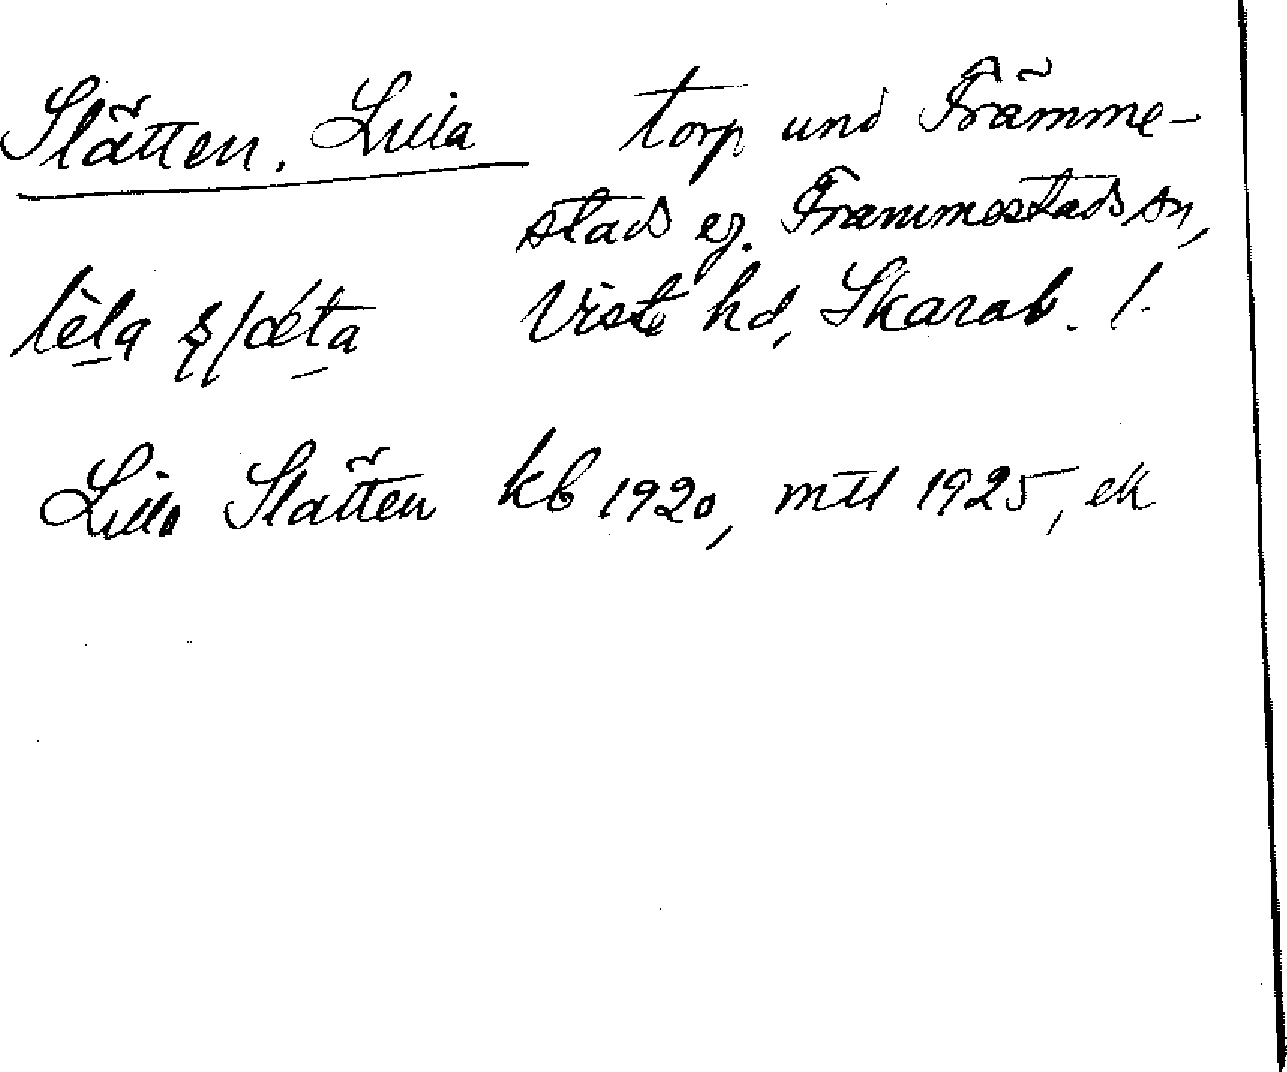 Slätten, Lilla torp und Främme-
stads eg. Främmestads sn,
Viste hd, Skarab. l.
Lilla Slätten kb 1920, mtl 1925, ek